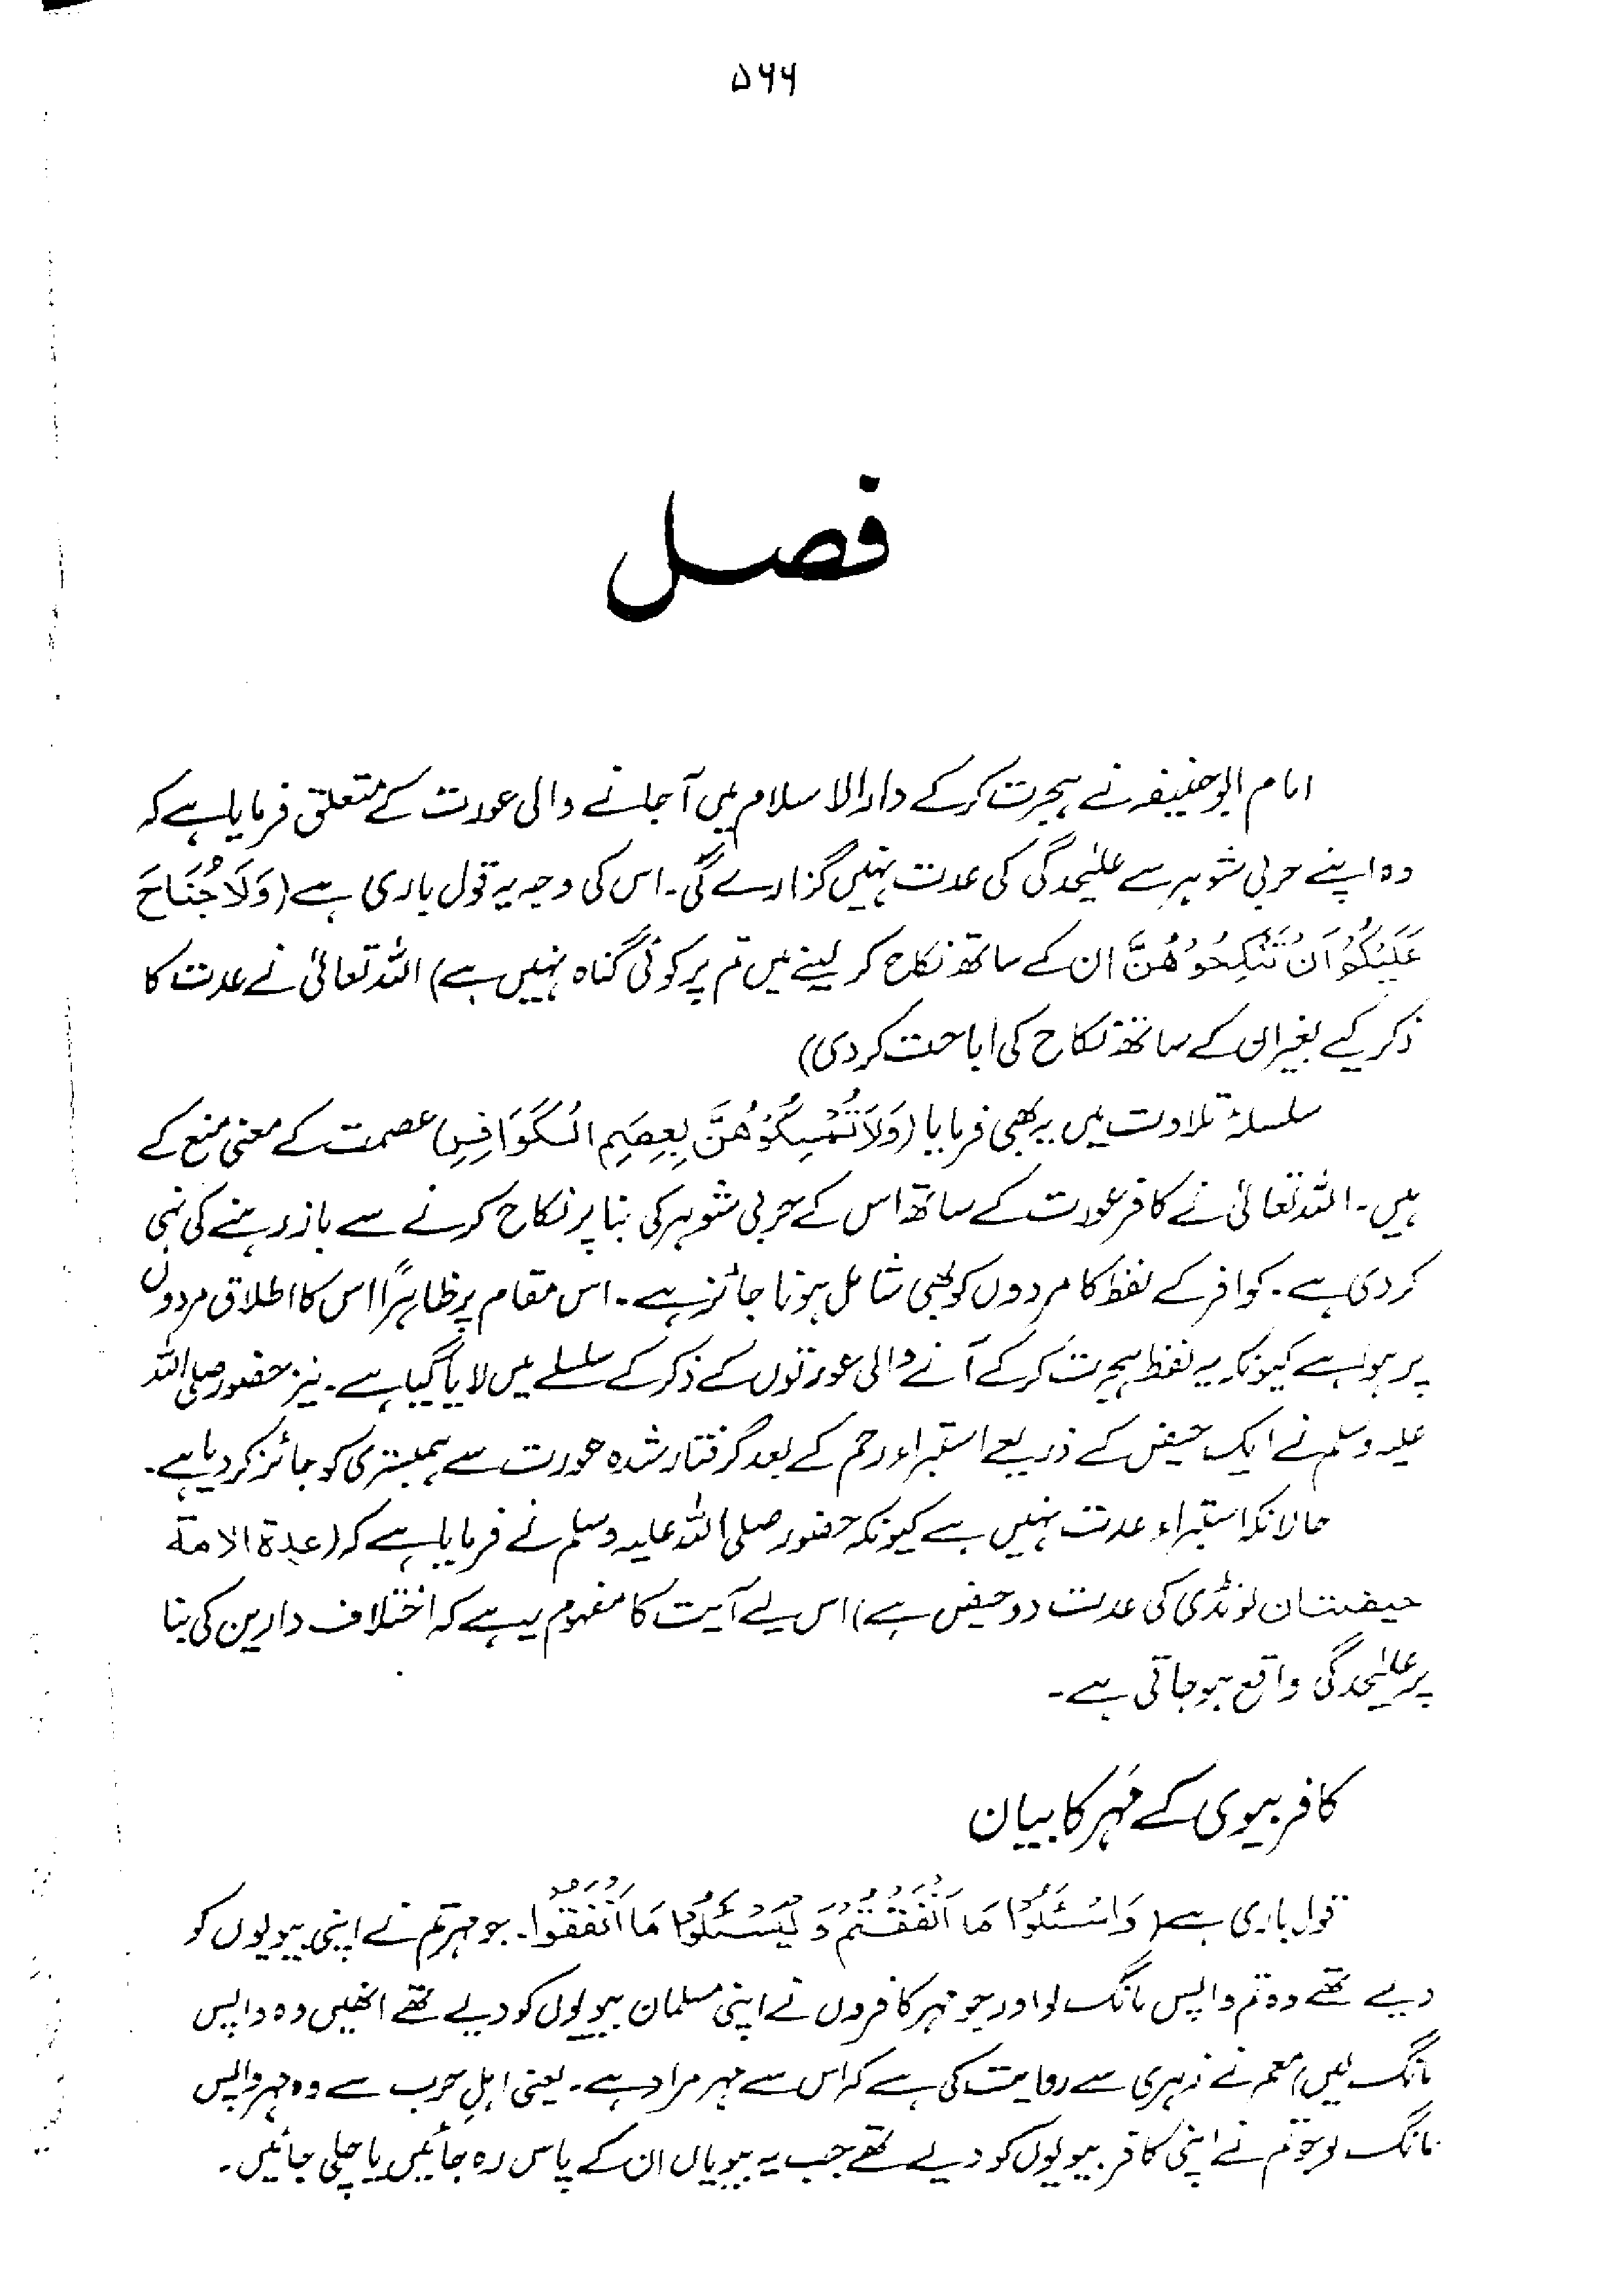 ۵۶۶
فصل
امام ابوحنیفہ نے ہجرت کرکے دارالاسلام میں آجانے والی عورت کے متعلق فرمایا ہے کہ
وہ اپنے حربی شوہر سے علیٰحدگی کی عدت نہیں گزارے گی۔ اس کی وجہ یہ قول باری ہے (وَلَا جُنَاحَ
عَلَيْكُمْ اَنْ تَنْكِحُوْهُنَّ ان کے ساتھ نکاح کر لینے میں تم پر کوئی گناہ نہیں ہے) اللہ تعالیٰ نے عدت کا
ذکر کیے بغیر ان کے ساتھ نکاح کی اباحت کردی)
سلسلۂ تلاوت میں یہ بھی فرمایا (وَلَا تُمْسِكُوْهُنَّ بِعِصَمِ الْكَوَافِرِ) عصمت کے معنی منع کے
ہیں۔ اللہ تعالیٰ نے کافر عورت کے ساتھ اس کے حربی شوہر کی بنا پر نکاح کرنے سے باز رہنے کی نہی
کردی ہے۔ کوافر کے لفظ کا مردوں کو بھی شامل ہونا جائز ہے۔ اس مقام پر ظاہراً اس کا اطلاق مردوں
پر ہوا ہے کیونکہ یہ لفظ ہجرت کرکے آنے والی عورتوں کے ذکر کے سلسلے میں لایا گیا ہے۔ نیز حضور صلی اللہ
علیہ وسلم نے ایک حیض کے ذریعے استبراء رحم کے بعد گرفتار شدہ عورت سے ہمبستری کو جائز کر دیا ہے۔
حالانکہ استبراء عدت نہیں ہے کیونکہ حضور صلی اللہ علیہ وسلم نے فرمایا ہے کہ (عدۃ الامۃ
حیضتان لونڈی کی عدت دو حیض ہے) اس لیے آیت کا مفہوم یہ ہے کہ اختلاف دارین کی بنا
پر علیٰحدگی واقع ہو جاتی ہے۔
کافر بیوی کے مَہر کا بیان
قول باری ہے (وَاسْئَلُوْا مَا اَنْفَقْتُمْ وَلْيَسْئَلُوْا مَا اَنْفَقُوْا۔ جو مہر تم نے اپنی بیویوں کو
دیے تھے وہ تم واپس مانگ لو اور جو مہر کافروں نے اپنی مسلمان بیویوں کو دیے تھے انھیں وہ واپس
مانگ لیں) معمر نے زہری سے روایت کی ہے کہ اس سے مہر مراد ہے۔ یعنی اہلِ حرب سے وہ مہر واپس
مانگ لو جو تم نے اپنی کافر بیویوں کو دیے تھے جب یہ بیویاں ان کے پاس رہ جائیں یا چلی جائیں۔